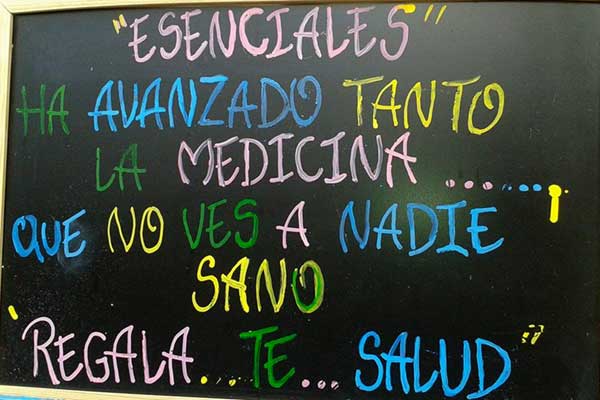 "ESENCIALES"
HA AVANZADO TANTO
LA MEDICINA ........,
QUE NO VES A NADIE
SANO
"REGALA...TE...SALUD"